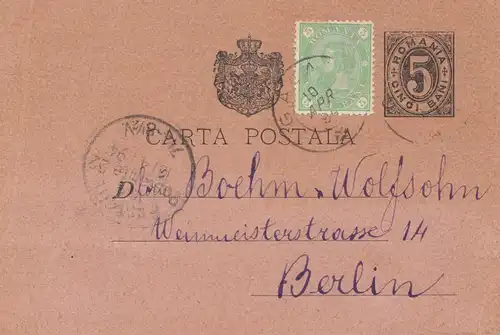 ROMANIA
5
CINCI BANI
ROMANIA
5 5
10
APR
CARTA POSTALA
D
Boehm & Wolfsohn
Weinmeisterstrasse 14
Berlin